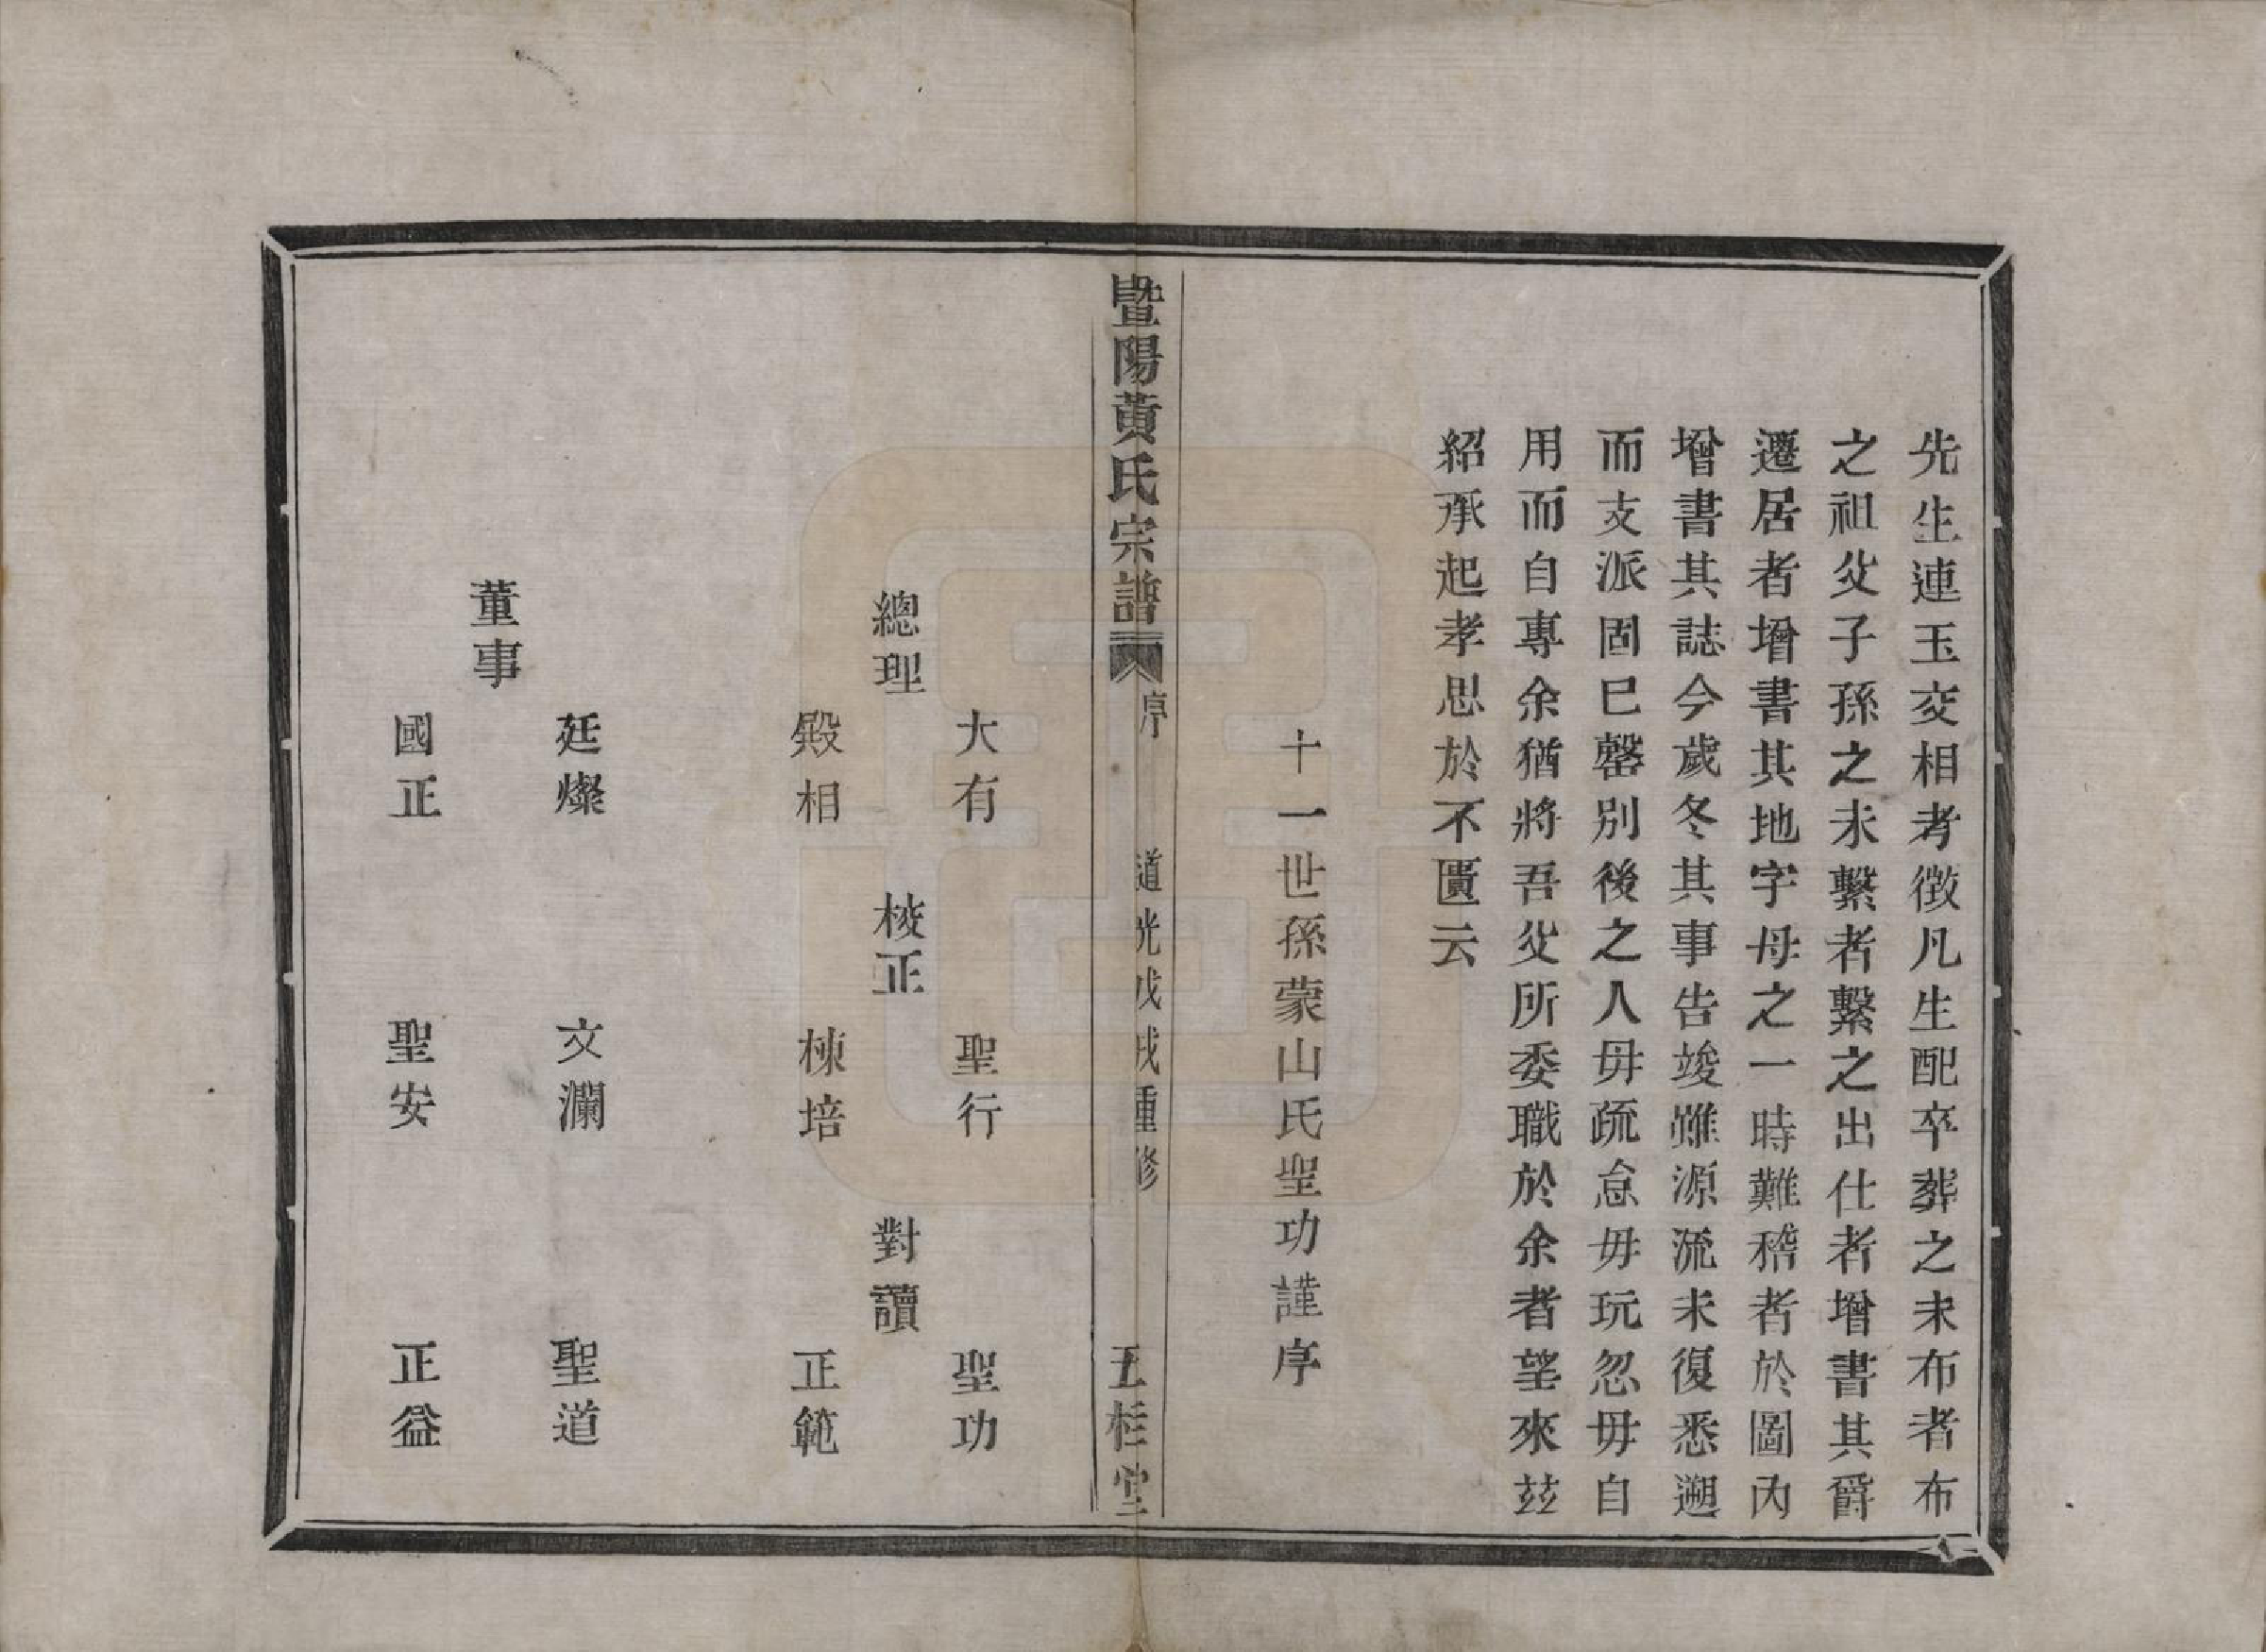 先生連玉交相考徴凡生配卒葬之未布者布
之祖父子孫之未繫者繫之出仕者增書其爵
遷居者增書其地字母之一時難稽者於圖內
增書其誌今歲冬其事告竣雖源流未復悉遡
而支派固已罄別後之人毋疏怠毋玩忽毋自
用而自專余猶將吾父所委職於余者望來玆
紹承起孝思於不匱云
十一世孫蒙山氏聖功謹序
暨陽黃氏宗譜 序 道光戊戌重修 五桂堂
大有 聖行 聖功
總理 校正 對讀
殿相 棟培 正範
廷燦 文瀾 聖道
董事
國正 聖安 正益